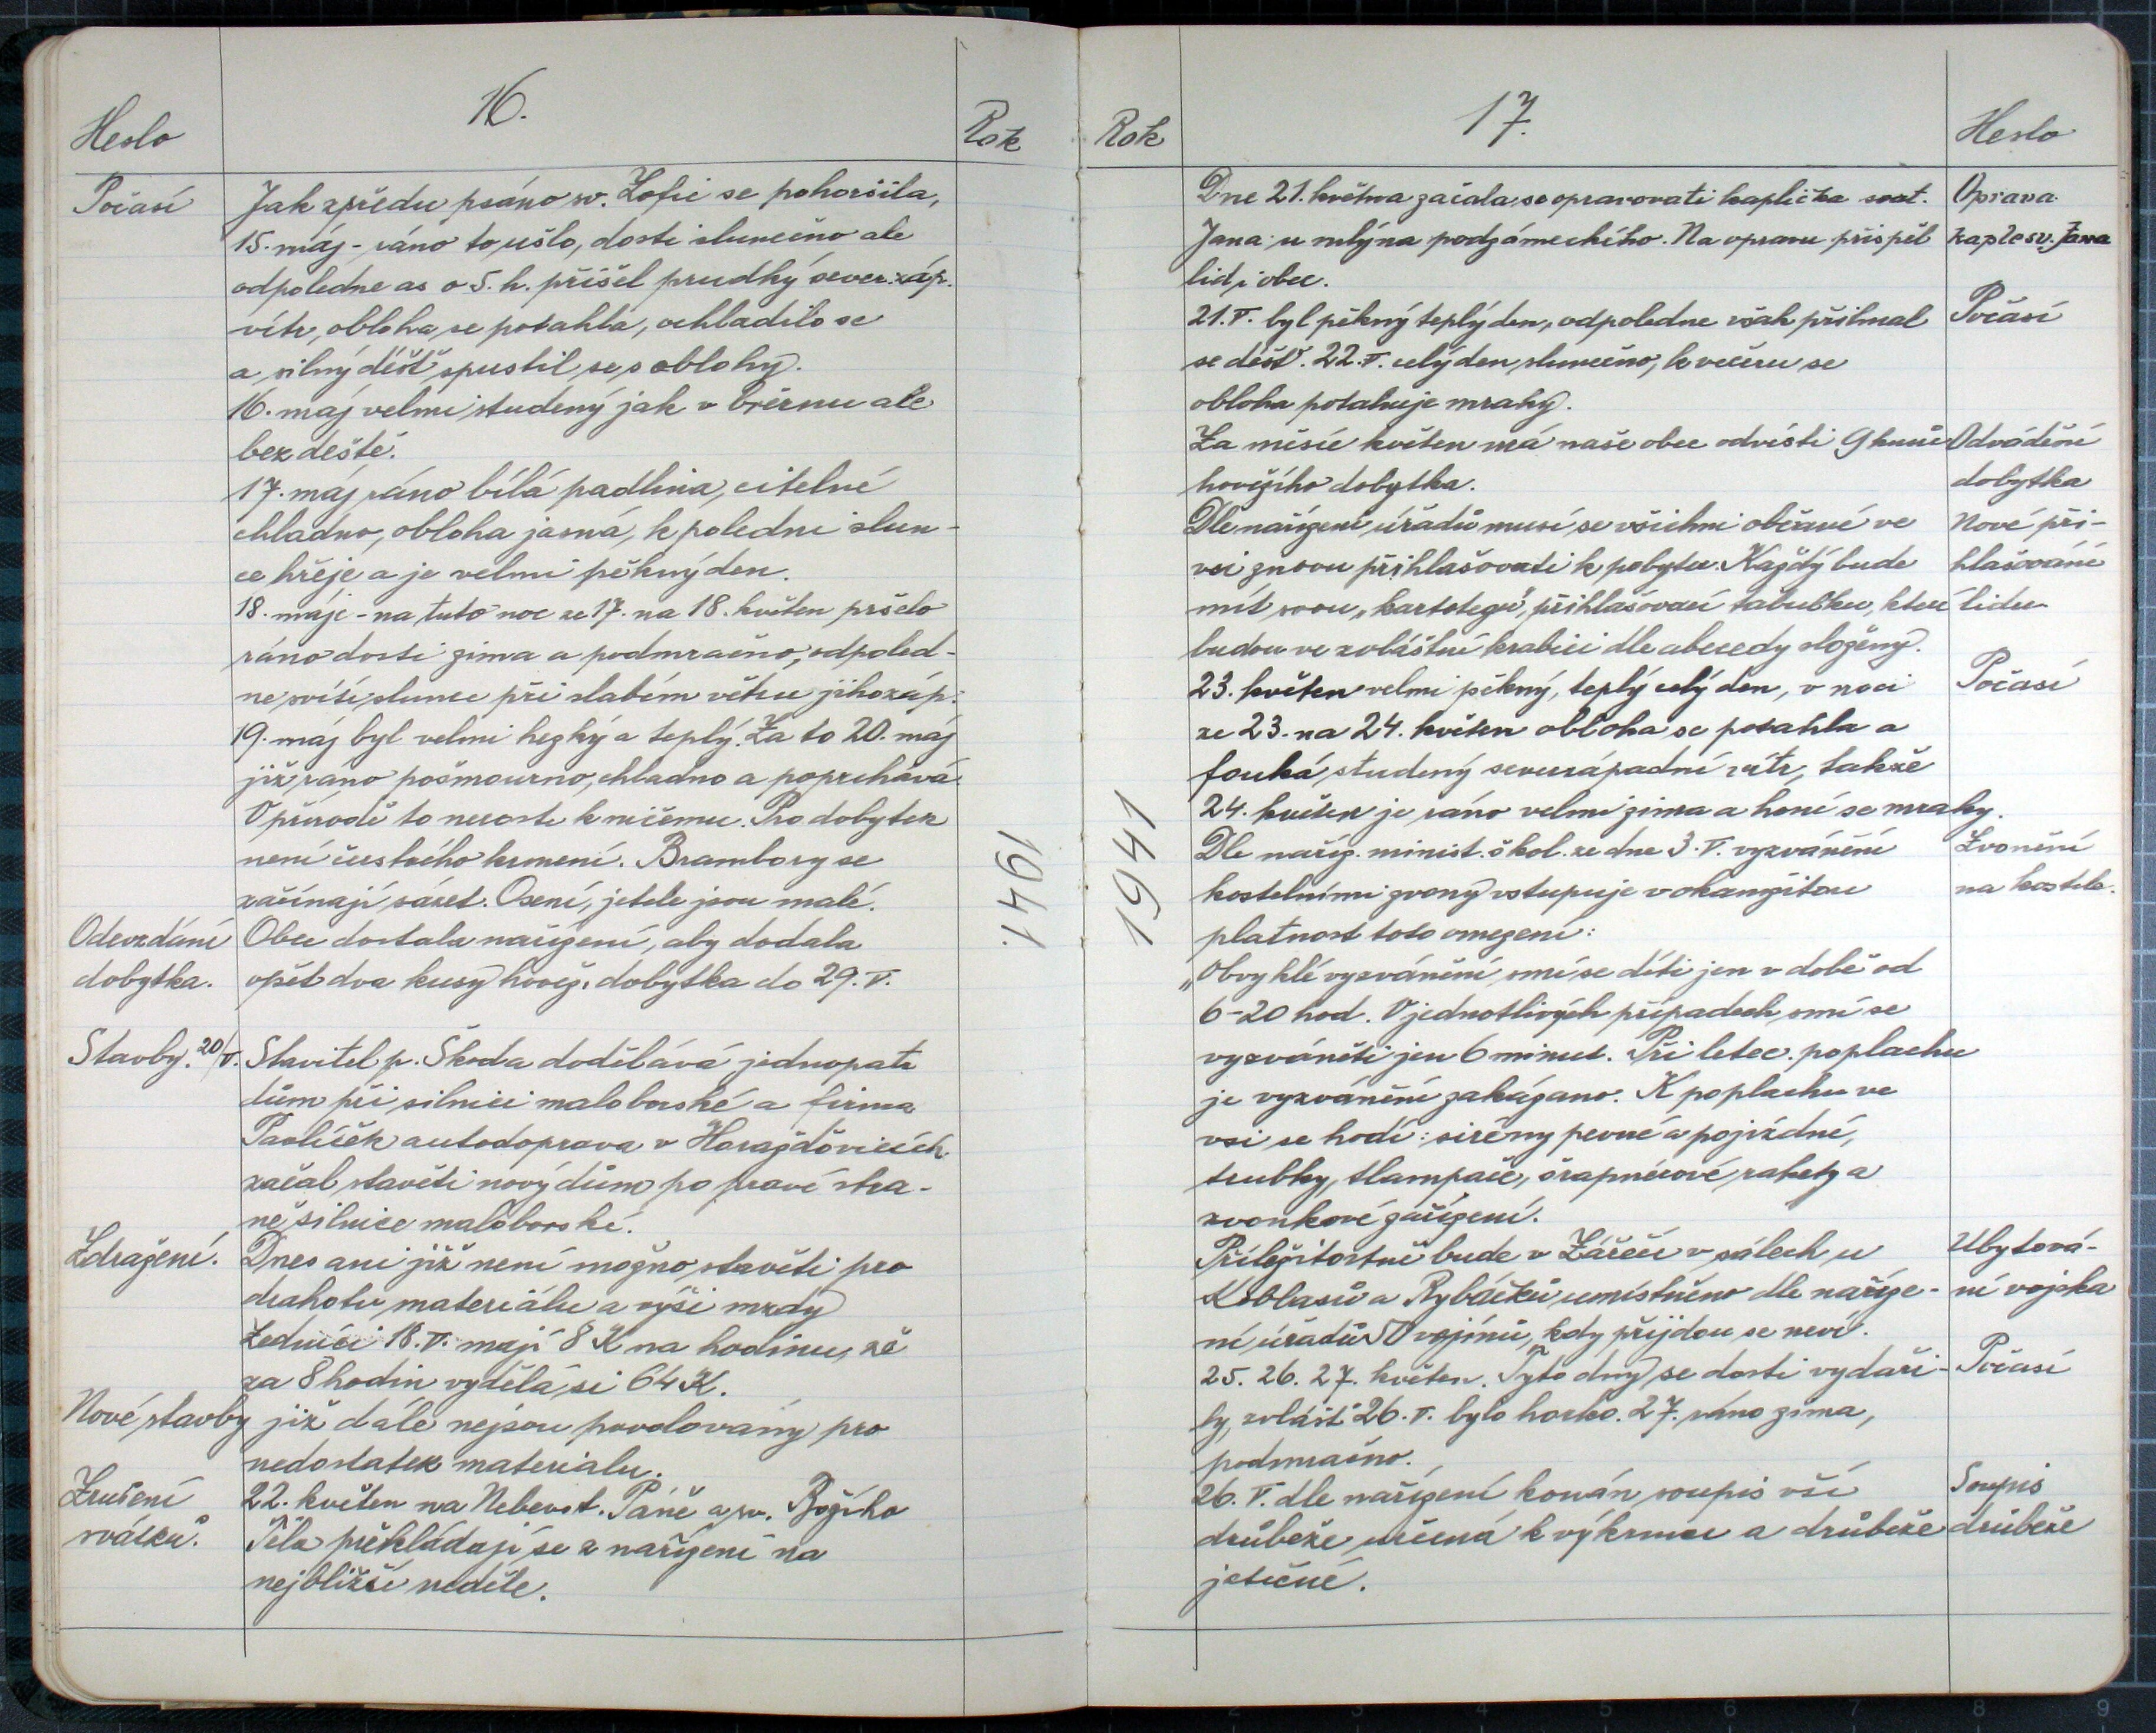 16.
Heslo
Rok
Počasí
Jak zpředu psáno sv. Žofie se pohoršila,
15. máj - ráno to ušlo, dosti slunečno ale
odpoledne as o 5. h. přišel prudký sever.záp.
vítr, obloha se potahla, ochladilo se
a silný déšť spustil se s oblohy.
16. máj velmi studený jak v březnu ale
bez deště.
17. máj ráno bílá padlina, citelné
chladno, obloha jasná, k poledni slun-
ce hřeje a je velmi pěkný den.
18. máje - na tuto noc ze 17. na 18. květen pršelo
ráno dosti zima a podmračno, odpoled-
ne svítí slunce při slabém větru jihozáp.
19. máj byl velmi hezký a teplý. Za to 20. máj
již ráno pošmourno, chladno a poprchává.
V přírodě to neroste k ničemu. Pro dobytek
není čerstvého krmení. Brambory se
začínají sázet. Osení, jetele jsou malé.
Odevzdání
dobytka.
Obec dostala nařízení, aby dodala
opět dva kusy hověz. dobytka do 29. V.
Stavby. 20/V.
Stavitel p. Škoda dodělává jednopatr
dům při silnici maloborské a firma
Pavlíček autodoprava v Horažďovicích
začal stavěti nový dům po pravé stra-
ně silnice maloborské.
Zdražení.
Dnes ani již není možno stavěti pro
drahotu materiálu a výši mzdy
Zedníci 18. V. mají 8 K na hodinu, že
za 8 hodin vydělá si 64 K.
Nové stavby již dále nejsou povolovány pro
nedostatek materialu.
Zrušení
svátků.
22. květen na Nebevst. Páně a sv. Božího
Těla překládají se z nařízení na
nejbližší neděle.
1941.
Rok
17.
Heslo
1941
Dne 21. května začala se opravovati kaplička svat.
Jana u mlýna podzámeckého. Na opravu přispěl
lid i obec.
Oprava
kaple sv. Jana
21. V. byl pěkný teplý den, odpoledne však přihnal
se déšť. 22. V. celý den slunečno, k večeru se
obloha potahuje mraky.
Počasí
Za měsíc květen má naše obec odvésti 9 kusů
hovězího dobytka.
Odvádění
dobytka
Dle nařízení úřadů musí se všichni občané ve
vsi znovu přihlašovati k pobytu. Každý bude
mít svou „kartotegu", přihlašovací tabulku, které
budou ve zvláštní krabici dle abecedy složeny.
Nové při-
hlašování
lidu
23. květen velmi pěkný, teplý celý den, v noci
ze 23. na 24. květen obloha se potahla a
fouká studený severzápadní vítr, takže
24. květen je ráno velmi zima a honí se mraky.
Počasí
Dle naříz. minist. škol. ze dne 3. V. vyzvánění
kostelními zvony vstupuje v okamžitou
platnost toto omezení:
Zvonění
na kostele.
„Obvyklé vyzvánění smí se díti jen v době od
6-20 hod. V jednotlivých případech smí se
vyzváněti jen 6 minut. Při letec. poplachu
je vyzvánění zakázano. K poplachu ve
vsi se hodí: sirény pevné a pojízdné,
trubky, tlampače, šrapnérové rakety a
zvonkové zařízení.
Příležitostně bude v Zářečí v sálech u
Koblasů a Rybáčků umístněno dle naříze-
ní úřadů 50 vojínů, kdy přijdou se neví.
Ubytová-
ní vojska
25. 26. 27. květen. Tyto dny se dosti vydaři-
ly, zvlášť 26. V. bylo horko. 27. ráno zima,
podmračno.
Počasí
26. V. dle nařízení konán soupis vší
drůbeže určená k výkrmu a drůbeže
jatečné.
Soupis
drůbeže